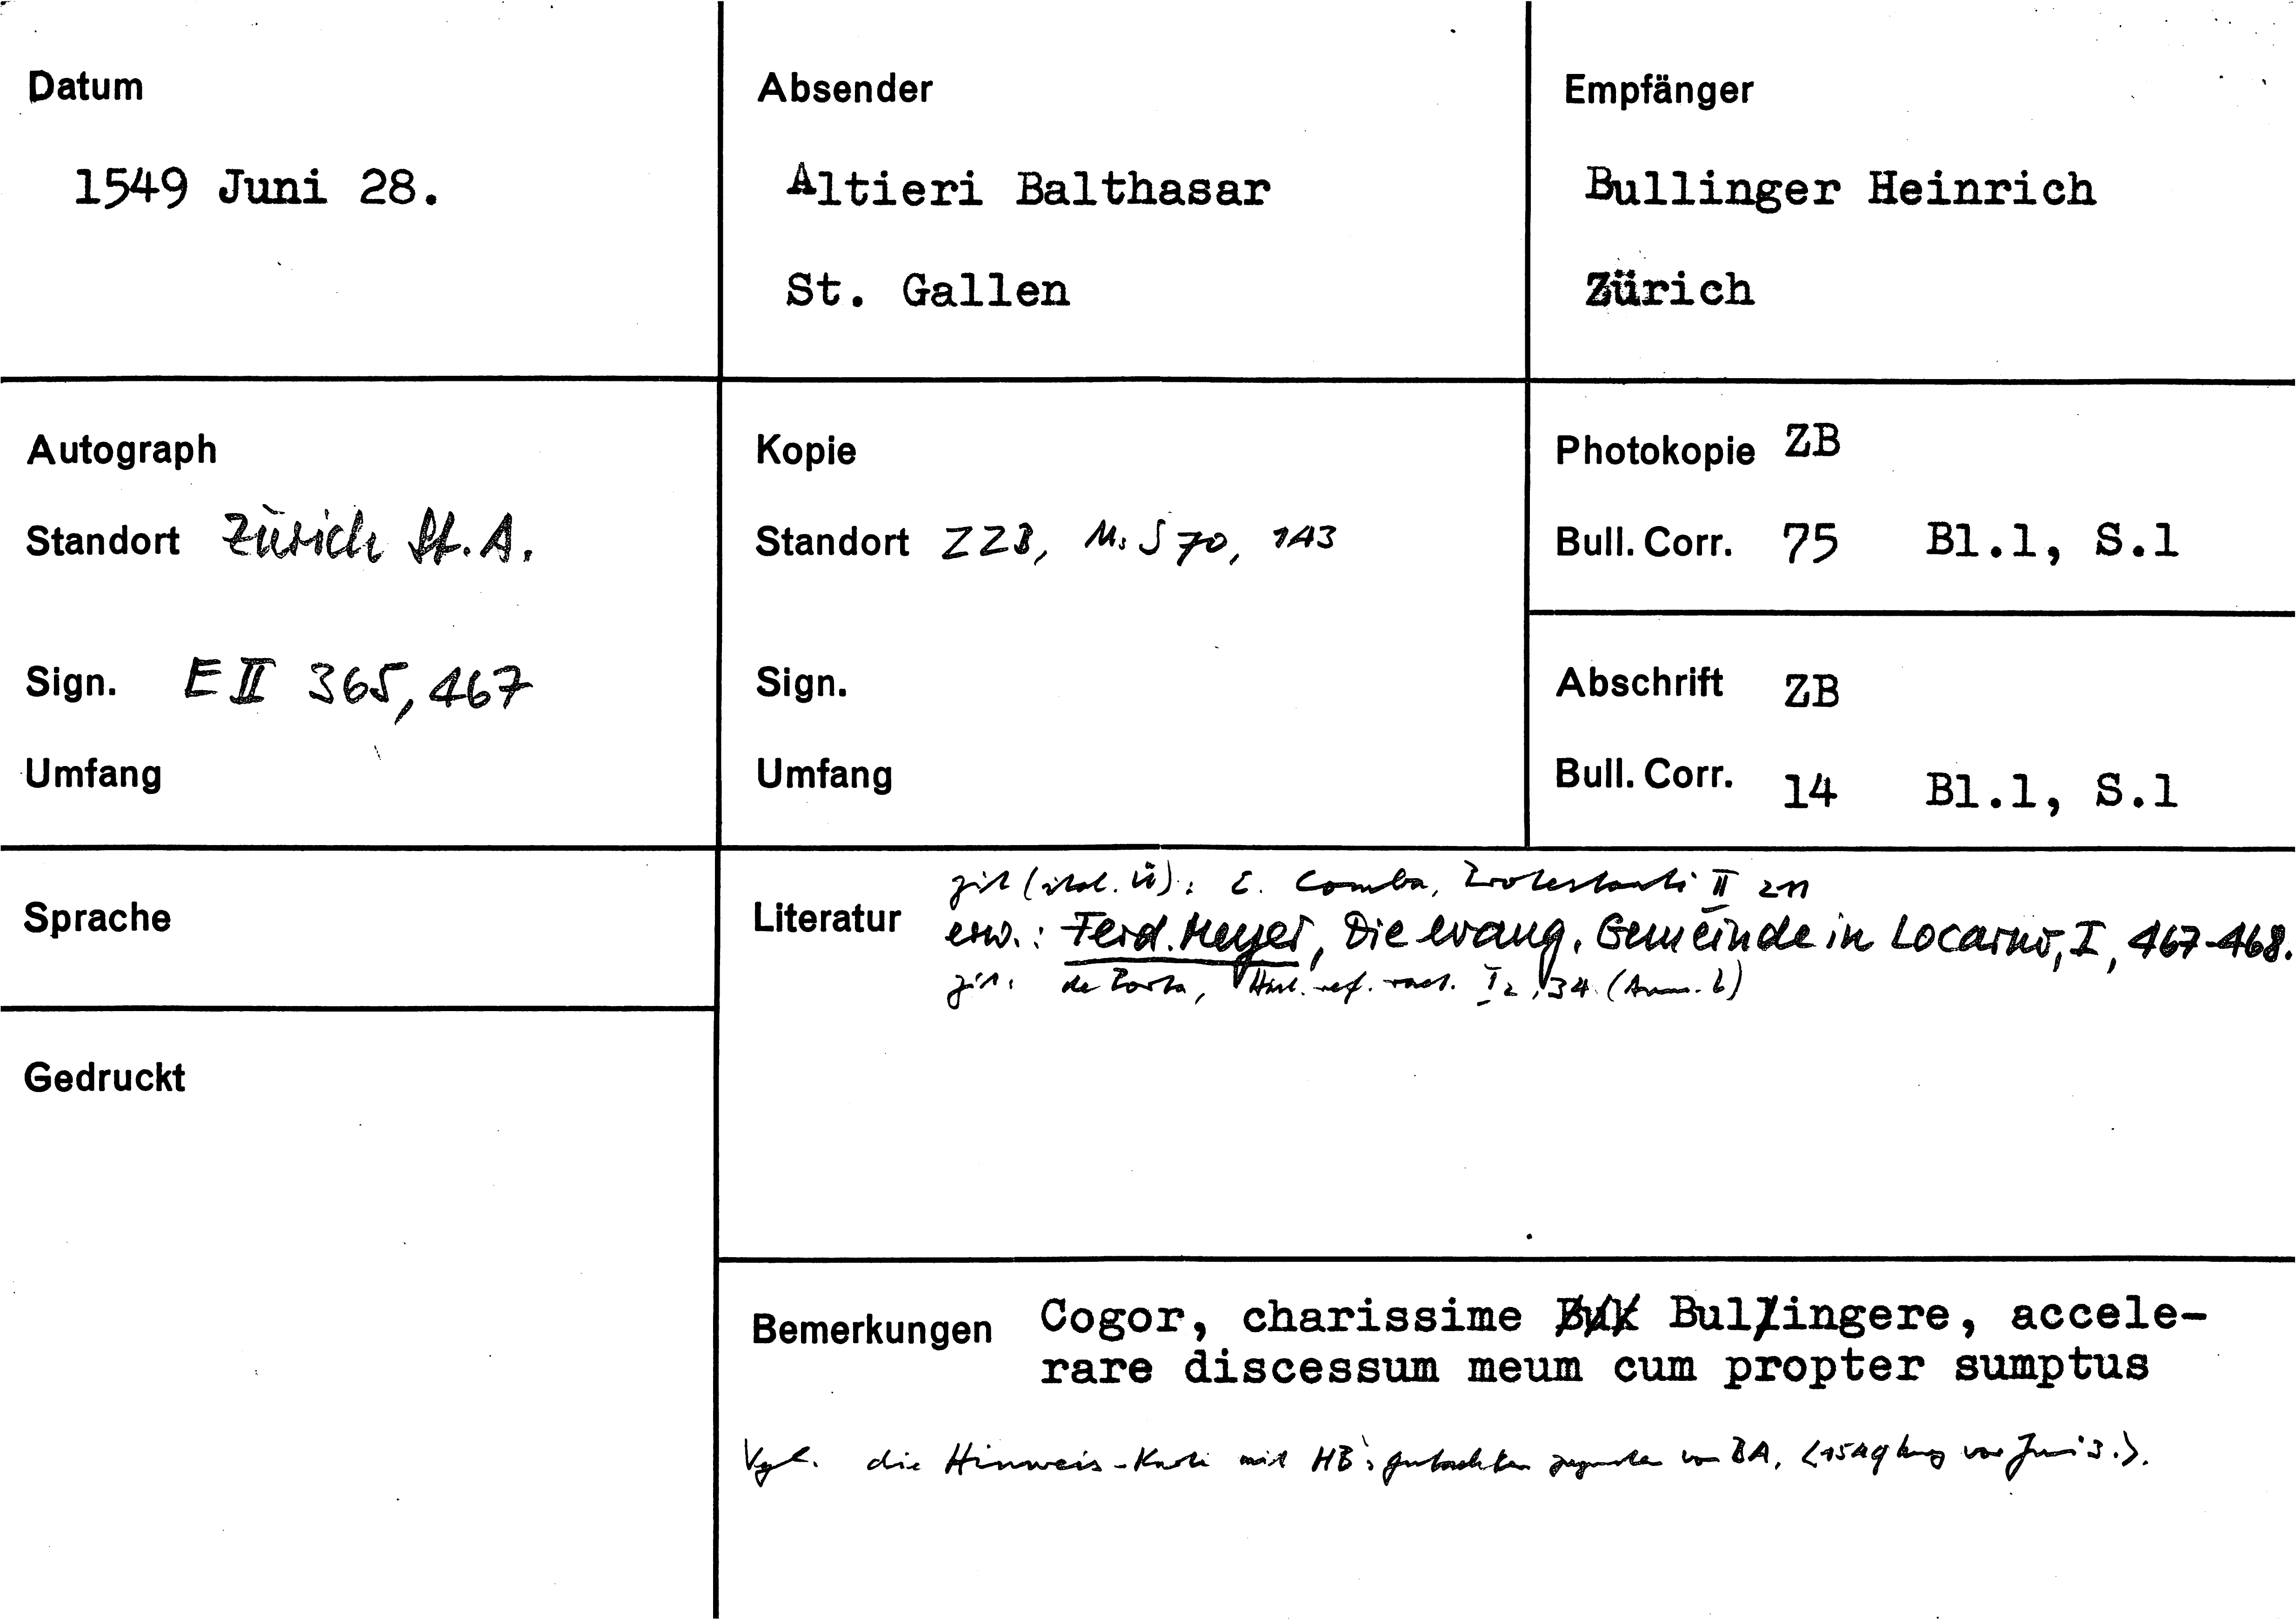 Datum
1549 Juni 28.
Absender
Altieri Balthasar
St. Gallen
Empfänger
Bullinger Heinrich
Zürich
Autograph
Standort Zürich St. A.
Sign. E II 365, 467
Umfang
Kopie
Standort ZZB, Ms S 70, 143
Sign.
Umfang
Photokopie ZB
Bull. Corr. 75 Bl.1, S.1
Abschrift ZB
Bull. Corr. 14 Bl.1, S.1
Sprache
Gedruckt
Literatur
zit (ital. Ü): E. Comba, Protestanti II 211
erw.: Ferd. Meyer, Die evang. Gemeinde in Locarno, I, 467-468.
zit. de Porta, Hist. ref. raet. I 2, 34 (Anm. b)
Bemerkungen Cogor, charissime Bullingere, accele-
rare discessum meum cum propter sumptus
Vgl. die Hinweis-Karte mit HB's Gutachten zugunsten von BA, <1549 kurz vor Juni 3.>.